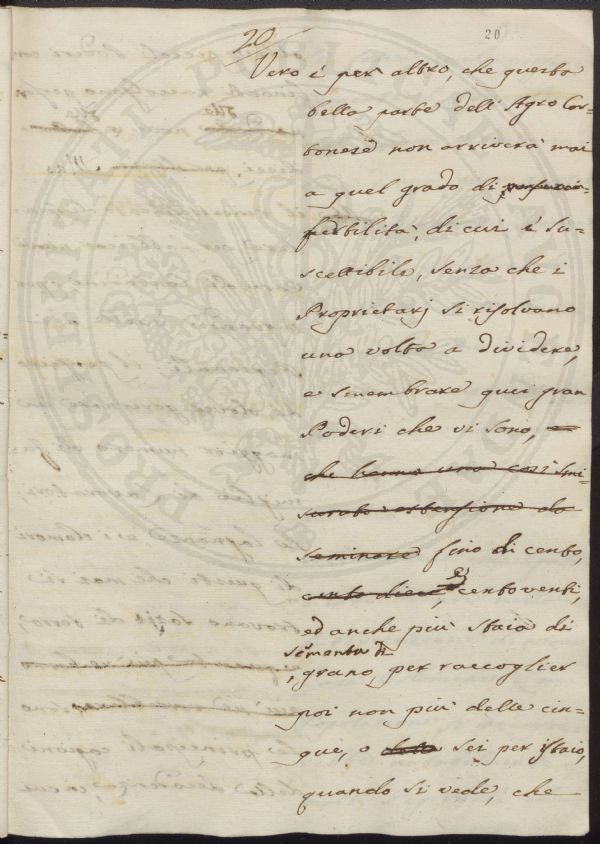 20
20
Vero è per altro, che questa
bella parte dell'Agro Cor-
tonese non arriverà mai
a quel grado di
fertilità, di cui è su-
scettibile, senza che i
Proprietarj si risolvano
una volta a dividere,
e smembrare quei gran
Poderi che vi sono, e
che hanno una così smi-
surata estensione da
seminare fino di cento,
cento dieci, e centoventi,
ed anche più staia di
sementa di
grano, per raccoglier
poi non più delle cin-
que, o delle sei per istaio,
quando si vede, che